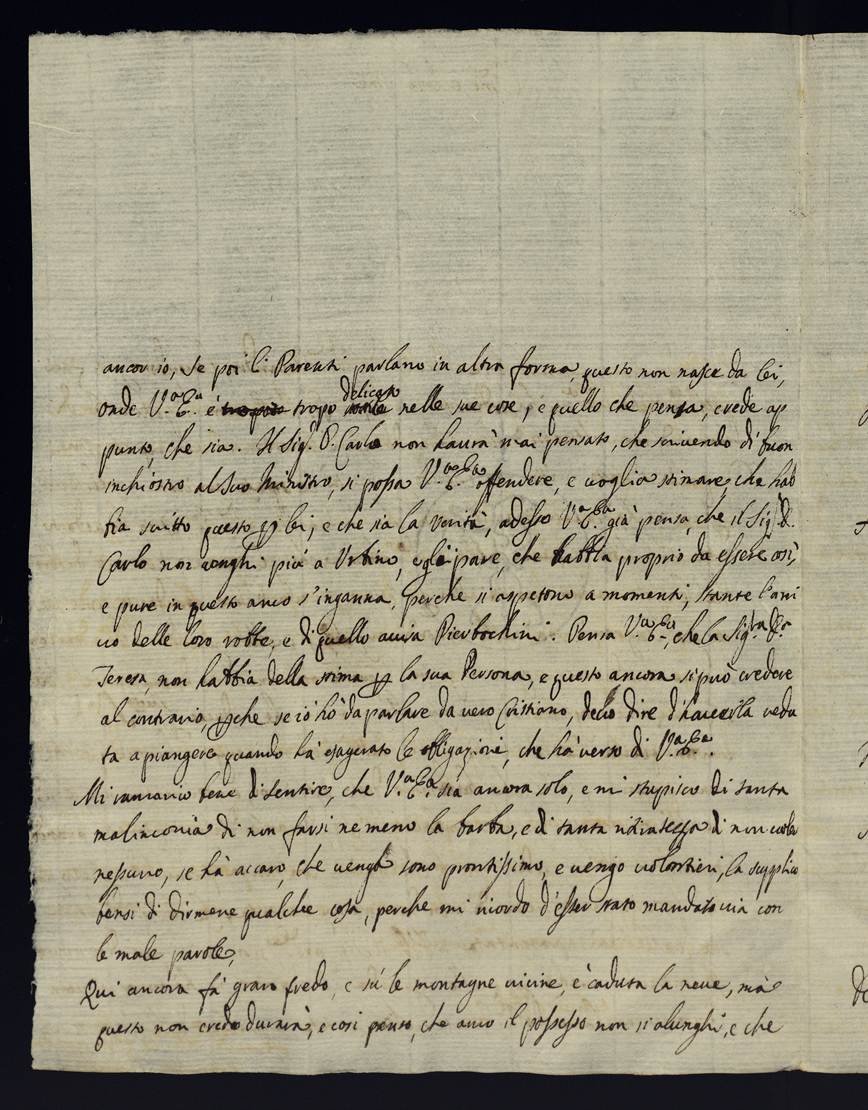 ancor io, se poi li Parenti parlano in altra forma, questo non nasce da lei,
onde V.a E.a é tropo delicato nelle sue cose, e quello che pensa, crede ap
punto, che sia. Il Sig.r D. Carlo non haurà mai pensato, che scrivendo di buon
inchiostro al suo Ministro, si possa V.a E.a offendere, e voglio stimare, che hab
bia scritto questo p lei, e che sia la verità, adesso V.a E.a già pensa, che il Sig.r D.
Carlo non venghi piú a Urbino, e gli pare, che habbia proprio da essere così,
e pure in questo anco s'inganna, perche si aspetono a momenti, stante l'arri
vo delle loro robbe, e di quello avisa Pierbochini. Pensa V.a E.a, che la Sig.ra D.a
Teresa, non habbia della stima p la sua Persona, e questo ancora si può credere
al contrario, pche se io hò da parlare da vero Cristiano, devo dire d'haverla vedu
ta a piangere quando hà esagerato le obligazioni, che hà verso di V.a E.a.
Mi ramario bene di sentire, che V.a E.a sia ancora solo, e mi stupisco di tanta
malinconia di non farsi ne meno la barba, e di tanta ritiratezza di non voler
nessuno, se hà accaro, che venga sono prontissimo, e vengo volontieri, la supplico
bensi di dirmene qualche cosa, perche mi ricordo d'esser stato mandato via con
le male parole,
Qui ancora fà gravo fredo, e sú le montagne vicine, è caduta la neve, mà
questo non credo durarà, e cosi penso, che anco il possesso non si alunghi, e che